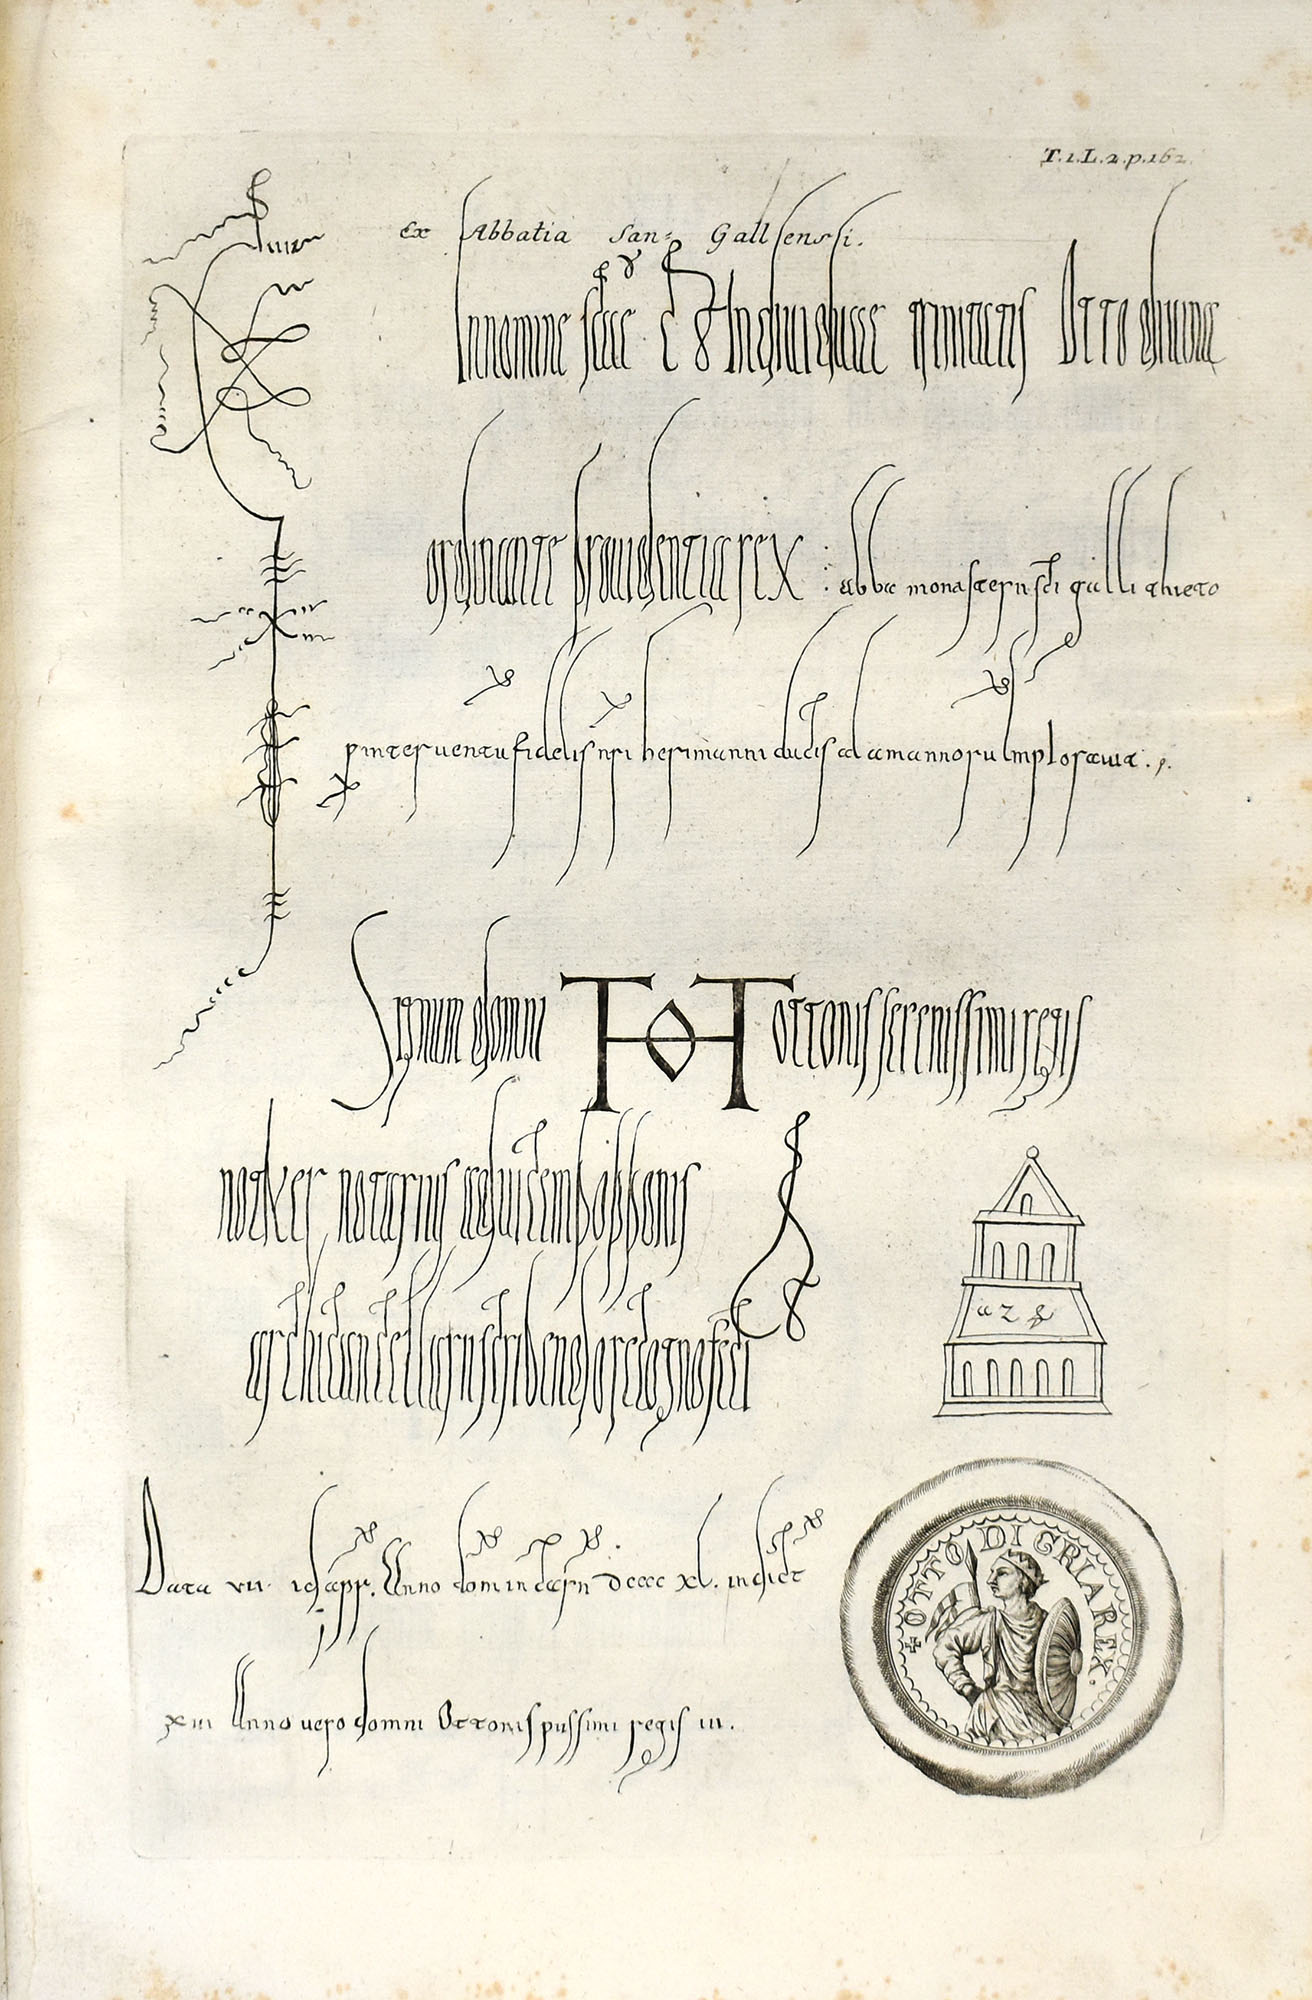 T.1.L.2.p.162.
Ex Abbatia San= Gallensi.
In nomine sc̄ae & Individuae trinitatis Otto divina
ordinante providentia rex : abba monasterii sc̄i galli thieto
p interventu fidelis nr̄i herimanni ducis alamannorū Imploravit.
Signum domni OTTO ottonis serenissimi regis
notker notarius advicem popponis
archicancellarii scribendo recognovi &
Data vii id apr. Anno dom incarn dcccc xl. indict
xiii Anno vero domni Ottonis piissimi regis iii.
a z &
+ OTTO DI GRIA REX.